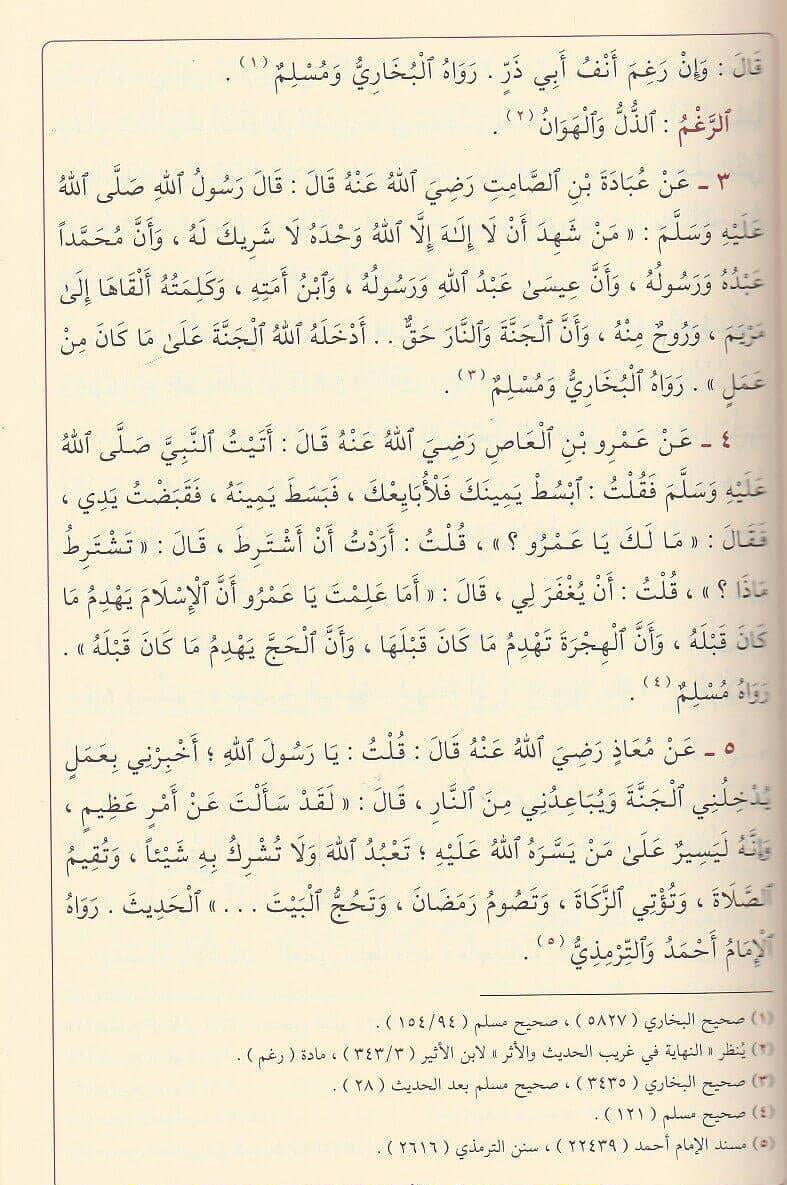 قَالَ : وَإِنْ رَغِمَ أَنْفُ أَبِي ذَرٍّ . رَوَاهُ ٱلْبُخَارِيُّ وَمُسْلِمٌ (١) .
ٱلرَّغْمُ : ٱلذُّلُّ وَٱلْهَوَانُ (٢) .
٣ ـ عَنْ عُبَادَةَ بْنِ ٱلصَّامِتِ رَضِيَ ٱللهُ عَنْهُ قَالَ : قَالَ رَسُولُ ٱللهِ صَلَّى ٱللهُ
عَلَيْهِ وَسَلَّمَ : « مَنْ شَهِدَ أَنْ لَا إِلَـٰهَ إِلَّا ٱللهُ وَحْدَهُ لَا شَرِيكَ لَهُ ، وَأَنَّ مُحَمَّداً
عَبْدُهُ وَرَسُولُهُ ، وَأَنَّ عِيسَىٰ عَبْدُ ٱللهِ وَرَسُولُهُ ، وَٱبْنُ أَمَتِهِ ، وَكَلِمَتُهُ أَلْقَاهَا إِلَىٰ
مَرْيَمَ ، وَرُوحٌ مِنْهُ ، وَأَنَّ ٱلْجَنَّةَ وَٱلنَّارَ حَقٌّ . . أَدْخَلَهُ ٱللهُ ٱلْجَنَّةَ عَلَىٰ مَا كَانَ مِنْ
عَمَلٍ » . رَوَاهُ ٱلْبُخَارِيُّ وَمُسْلِمٌ (٣) .
٤ ـ عَنْ عَمْرِو بْنِ ٱلْعَاصِ رَضِيَ ٱللهُ عَنْهُ قَالَ : أَتَيْتُ ٱلنَّبِيَّ صَلَّى ٱللهُ
عَلَيْهِ وَسَلَّمَ فَقُلْتُ : ٱبْسُطْ يَمِينَكَ فَلْأُبَايِعْكَ ، فَبَسَطَ يَمِينَهُ ، فَقَبَضْتُ يَدِي ،
فَقَالَ : « مَا لَكَ يَا عَمْرُو ؟ » ، قُلْتُ : أَرَدْتُ أَنْ أَشْتَرِطَ ، قَالَ : « تَشْتَرِطُ
مَاذَا ؟ » ، قُلْتُ : أَنْ يُغْفَرَ لِي ، قَالَ : « أَمَا عَلِمْتَ يَا عَمْرُو أَنَّ ٱلْإِسْلَامَ يَهْدِمُ مَا
كَانَ قَبْلَهُ ، وَأَنَّ ٱلْهِجْرَةَ تَهْدِمُ مَا كَانَ قَبْلَهَا ، وَأَنَّ ٱلْحَجَّ يَهْدِمُ مَا كَانَ قَبْلَهُ » .
رَوَاهُ مُسْلِمٌ (٤) .
٥ ـ عَنْ مُعَاذٍ رَضِيَ ٱللهُ عَنْهُ قَالَ : قُلْتُ : يَا رَسُولَ ٱللهِ ؛ أَخْبِرْنِي بِعَمَلٍ
يُدْخِلُنِي ٱلْجَنَّةَ وَيُبَاعِدُنِي مِنَ ٱلنَّارِ ، قَالَ : « لَقَدْ سَأَلْتَ عَنْ أَمْرٍ عَظِيمٍ ،
وَإِنَّهُ لَيَسِيرٌ عَلَىٰ مَنْ يَسَّرَهُ ٱللهُ عَلَيْهِ ؛ تَعْبُدُ ٱللهَ وَلَا تُشْرِكُ بِهِ شَيْئاً ، وَتُقِيمُ
ٱلصَّلَاةَ ، وَتُؤْتِي ٱلزَّكَاةَ ، وَتَصُومُ رَمَضَانَ ، وَتَحُجُّ ٱلْبَيْتَ . . . » ٱلْحَدِيثَ . رَوَاهُ
ٱلْإِمَامُ أَحْمَدُ وَٱلتِّرْمِذِيُّ (٥) .
(١) صحيح البخاري ( ٥٨٢٧ ) ، صحيح مسلم ( ١٥٤/٩٤ ) .
(٢) يُنظر « النهاية في غريب الحديث والأثر » لابن الأثير ( ٣٤٣/٣ ) ، مادة ( رغم ) .
(٣) صحيح البخاري ( ٣٤٣٥ ) ، صحيح مسلم بعد الحديث ( ٢٨ ) .
(٤) صحيح مسلم ( ١٢١ ) .
(٥) مسند الإمام أحمد ( ٢٢٤٣٩ ) ، سنن الترمذي ( ٢٦١٦ ) .